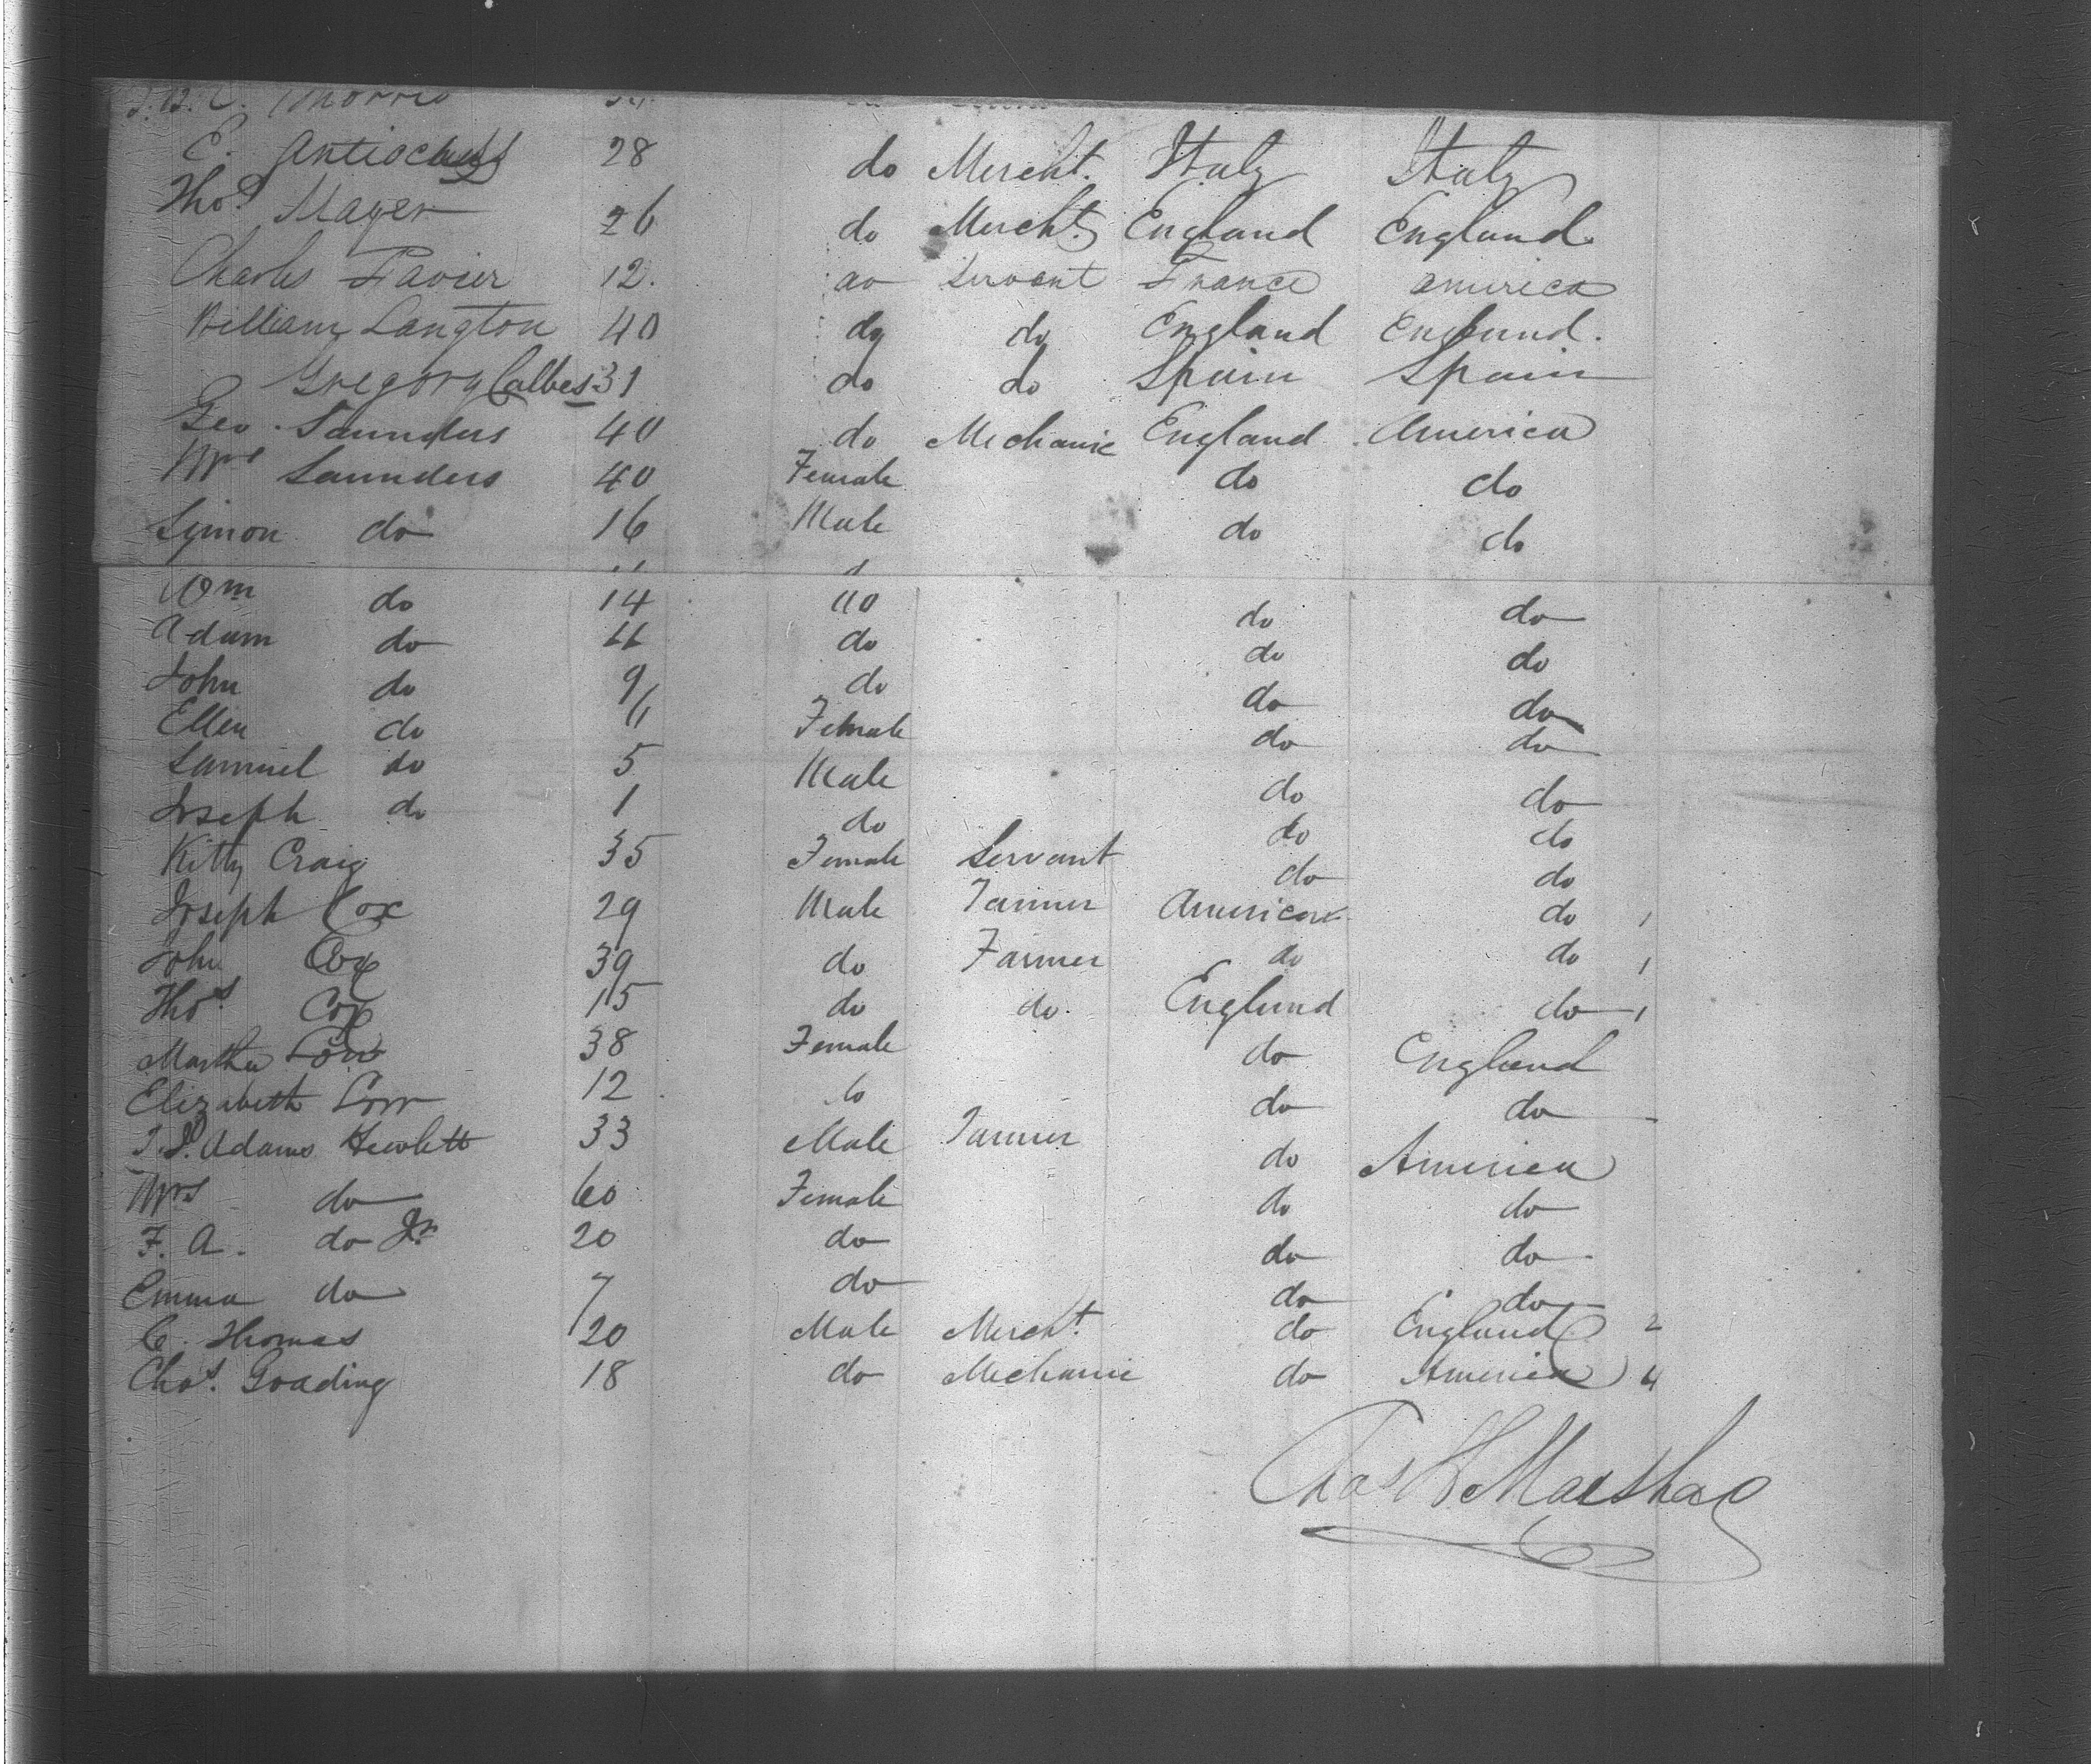 E. Antiochus 28 do Mercht. Italy Italy
Thos. Mayer 26 do Mercht. England England.
Charles Favier 12. do Servant France America
William Langton 40 do do England England.
Gregory Calbes 31 do do Spain Spain
Geo. Saunders 40 do Mechanic England America
Mrs Saunders 40 Female do do
Symon do 16 Male do do
Wm do 14 do do do
Adam do 11 do do do
John do 9 do do do
Ellen do Female do do
Samuel do 5 Male do do
Joseph do 1 do do do
Kitty Craig 35 Female Servant do do
Joseph Cox 29 Male Farmer America do 1
John Cox 39 do Farmer do do 1
Thos Cox 15 do do England do 1
Martha 38 Female do England
Elizabeth 12 do do do
Adams Hewlett 33 Male Farmer do America
Mrs do 60 Female do do
F. A. do Jr. 20 do do do
Emma do 7 do do do
C. Thomas 20 Male Mercht. do England 2
Chas. Goading 18 do Mechanic do America 4
Chas H Marshall